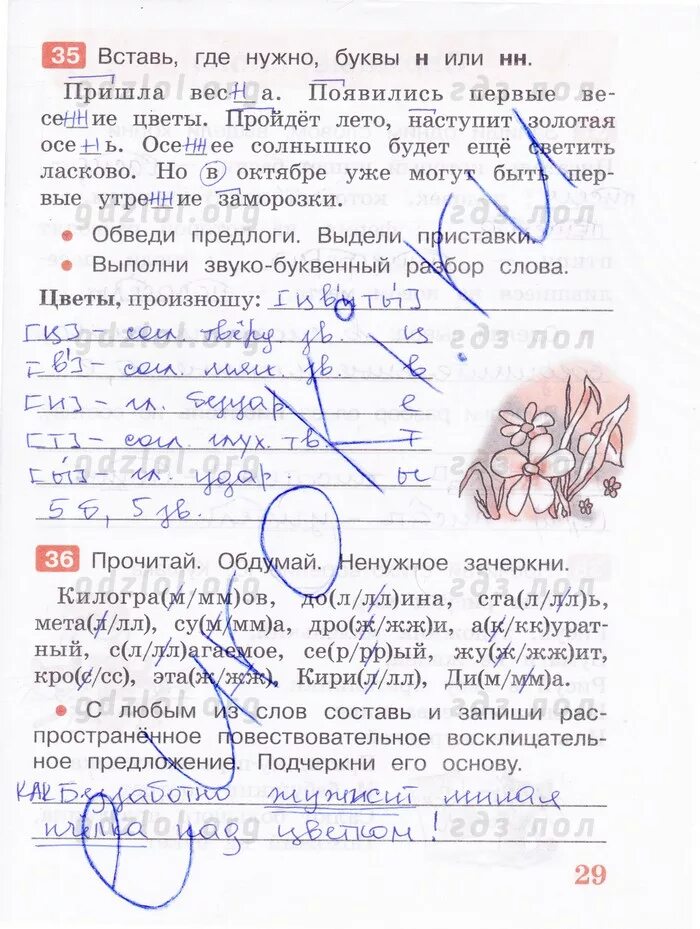 35 Вставь, где нужно, буквы н или нн.
Пришла весна. Появились первые ве-
сенние цветы. Пройдёт лето, наступит золотая
осень. Осеннее солнышко будет ещё светить
ласково. Но в октябре уже могут быть пер-
вые утренние заморозки.
• Обведи предлоги. Выдели приставки.
• Выполни звуко-буквенный разбор слова.
Цветы, произношу: [цвиты́]
[ц] – согл. твёрд. зв. ц
[в'] – согл. мягк. зв. в
[и] – гл. безудар. е
[т] – согл. глух. тв. т
[ы́] – гл. удар. ы
5 б, 5 зв.
36 Прочитай. Обдумай. Ненужное зачеркни.
Килогра(м/мм)ов, до(л/лл)ина, ста(л/лл)ь,
мета(л/лл), су(м/мм)а, дро(ж/жж)и, а(к/кк)урат-
ный, с(л/лл)агаемое, се(р/рр)ый, жу(ж/жж)ит,
кро(с/сс), эта(ж/жж), Кири(л/лл), Ди(м/мм)а.
• С любым из слов составь и запиши рас-
пространённое повествовательное восклицатель-
ное предложение. Подчеркни его основу.
Как беззаботно жужжит милая
пчёлка над цветком!
29
gdzlol.org
гдз лол